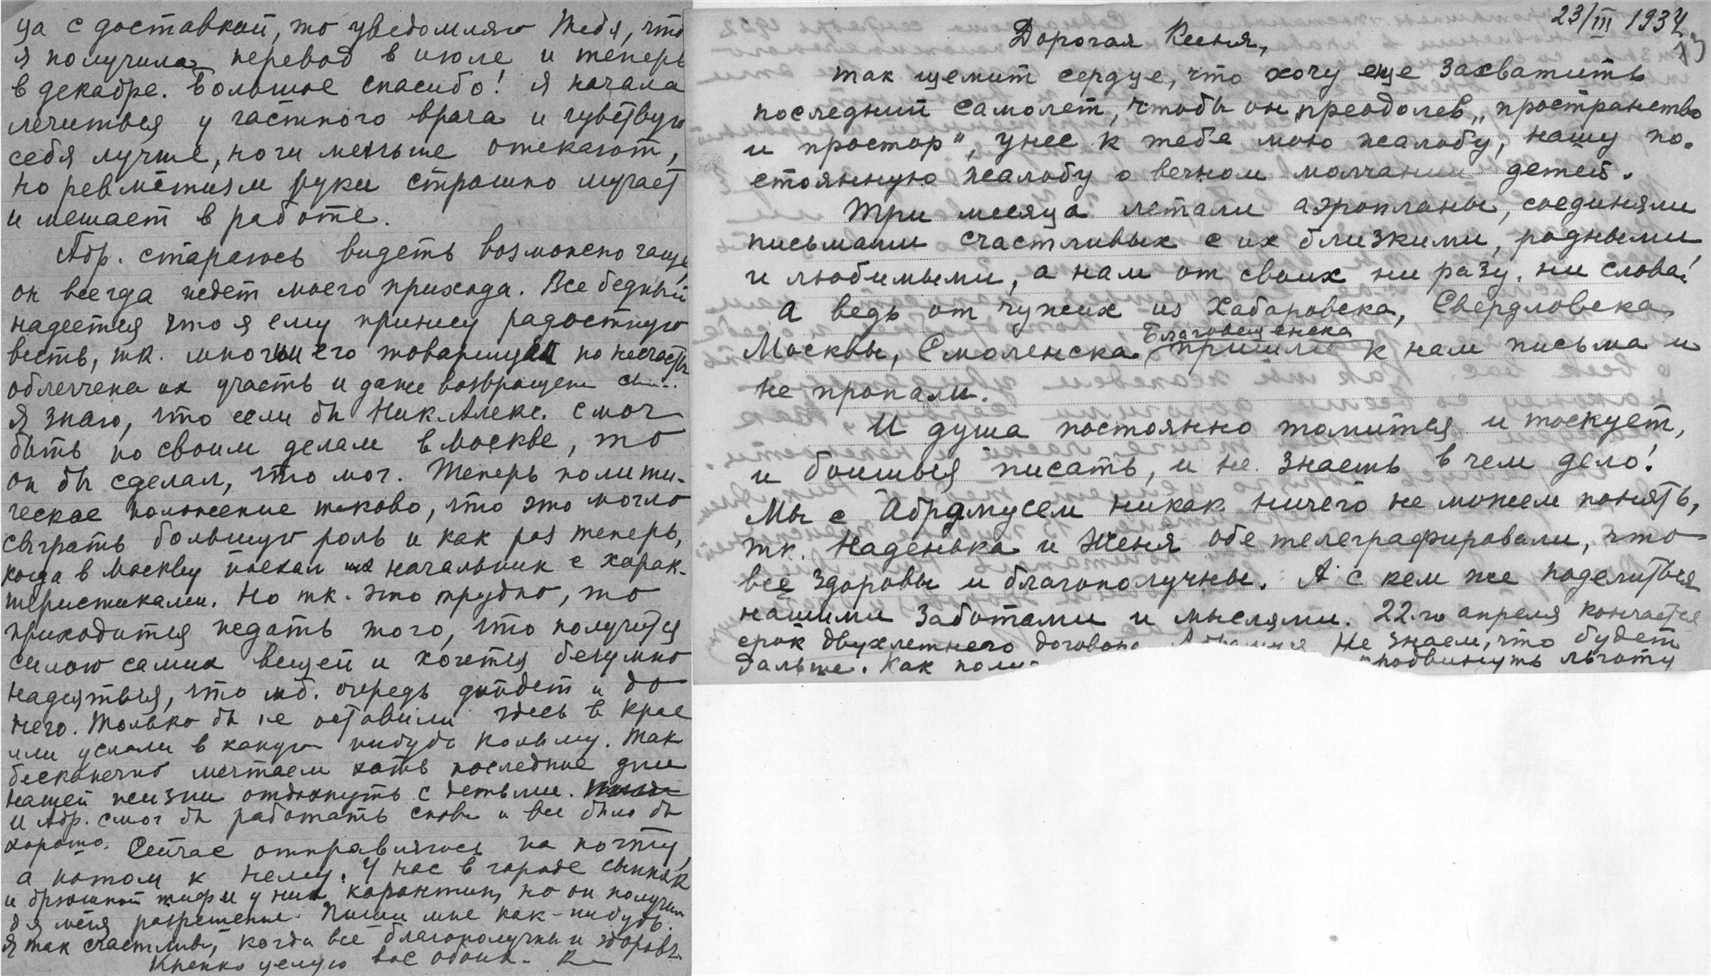 ца с доставкой, то уведомляю Тебя, что
я получила перевод в июле и теперь
в декабре. Большое спасибо! Я начала
лечиться у частного врача и чувствую
себя лучше, ноги меньше отекают,
но ревматизм руки страшно мучает
и мешает в работе.
Абр. стараюсь видеть возможно чаще,
он всегда ждет моего прихода. Все бедный
надеется что я ему принесу радостную
весть, тк. многим его товарищам по несчастью
облегчена их участь и даже возвращены
Я знаю, что если бы Ник. Алекс. смог
быть по своим делам в Москве, то
он бы сделал, что мог. Теперь полити-
ческое положение таково, что это могло
сыграть большую роль и как раз теперь,
когда в Москву поехал их начальник с харак-
теристиками. Но тк. это трудно, то
приходится ждать того, что получится
силою самих вещей и хочется безумно
надеяться, что мб. очередь дойдет и до
него. Только бы не оставили здесь в крае
или услали в какую нибудь Колыму. Так
бесконечно мечтаем хоть последние дни
нашей жизни отдохнуть с детьми.
И Абр. смог бы работать снова и все было бы
хорошо. Сейчас отправляюсь на почту,
а потом к нему. У нас в городе сыпняк
и брюшной тиф и у них карантин, но он получил
для меня разрешение. Пиши мне как-нибудь.
Я так счастлива, когда все благополучны и здоровы.
Крепко целую вас обоих.
23/III 1934
Дорогая Ксеня,
так щемит сердце, что хочу еще захватить
последний самолет, чтобы он, преодолев „пространство
и простор", унес к тебе мою жалобу, нашу по-
стоянную жалобу о вечном молчании детей.
Три месяца летали аэропланы, соединяли
письмами счастливых с их близкими, родными
и любимыми, а нам от своих ни разу, ни слова!
А ведь от чужих из Хабаровска, Свердловска,
Благовещенска
Москвы, Смоленска пришли к нам письма и
не пропали.
И душа постоянно томится и тоскует,
и боишься писать, и не знаешь в чем дело!
Мы с Абрамусем никак ничего не можем понять,
тк. Наденька и Женя обе телеграфировали, что
все здоровы и благополучны. А с кем же поделиться
нашими заботами и мыслями. 22-го апреля кончается
срок двухлетнего договора Не знаем, что будет
дальше. Как продвинуть льготу